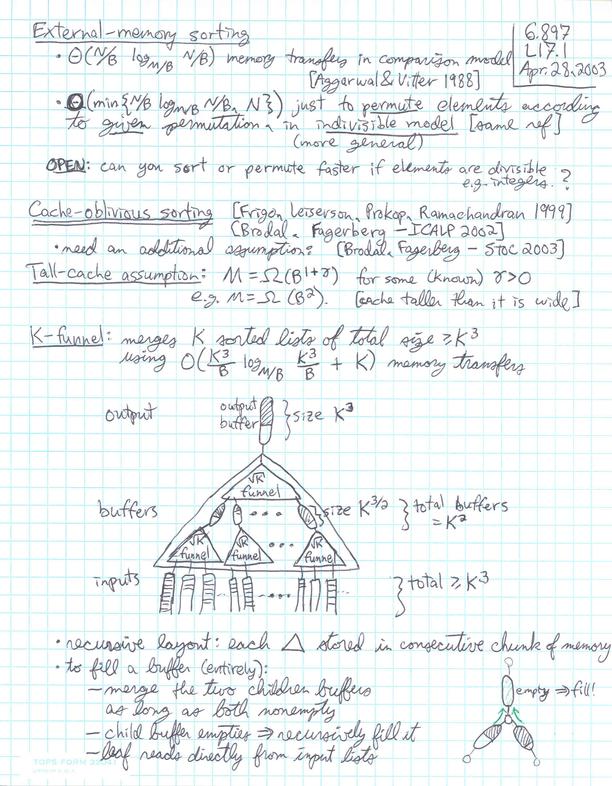 6.897
L17.1
Apr. 28, 2003
External-memory sorting
• Θ(N/B log_{M/B} N/B) memory transfers in comparison model
[Aggarwal & Vitter 1988]
• Θ(min{N/B log_{M/B} N/B, N}) just to permute elements according
to given permutation, in indivisible model [same ref]
(more general)
OPEN: can you sort or permute faster if elements are divisible
e.g. integers?
Cache-oblivious sorting [Frigo, Leiserson, Prokop, Ramachandran 1999]
[Brodal, Fagerberg – ICALP 2002]
• need an additional assumption: [Brodal, Fagerberg – STOC 2003]
Tall-cache assumption: M = Ω(B^{1+γ}) for some (known) γ>0
e.g. M = Ω(B²). [cache taller than it is wide]
K-funnel: merges K sorted lists of total size ≥ K³
using O(K³/B log_{M/B} K³/B + K) memory transfers
output
output
buffer
} size K³
√K
funnel
buffers
size K^{3/2}
} total buffers
= K²
√K
funnel
√K
funnel
√K
funnel
inputs
} total ≥ K³
• recursive layout: each △ stored in consecutive chunk of memory
• to fill a buffer (entirely):
– merge the two children buffers
as long as both nonempty
– child buffer empties ⇒ recursively fill it
– leaf reads directly from input lists
empty ⇒ fill!